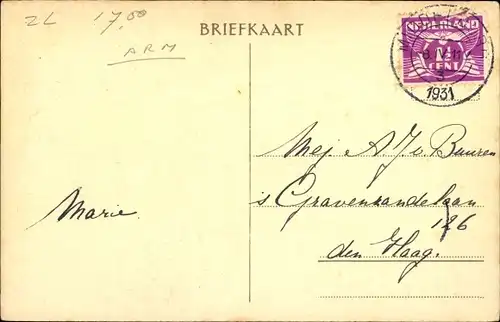 ZL 17,00
ARM
BRIEFKAART
NEDERLAND
1½
CENT
1931
Mej. A J v. Buuren
's Gravenzandelaan
126
den Haag.
Marie.